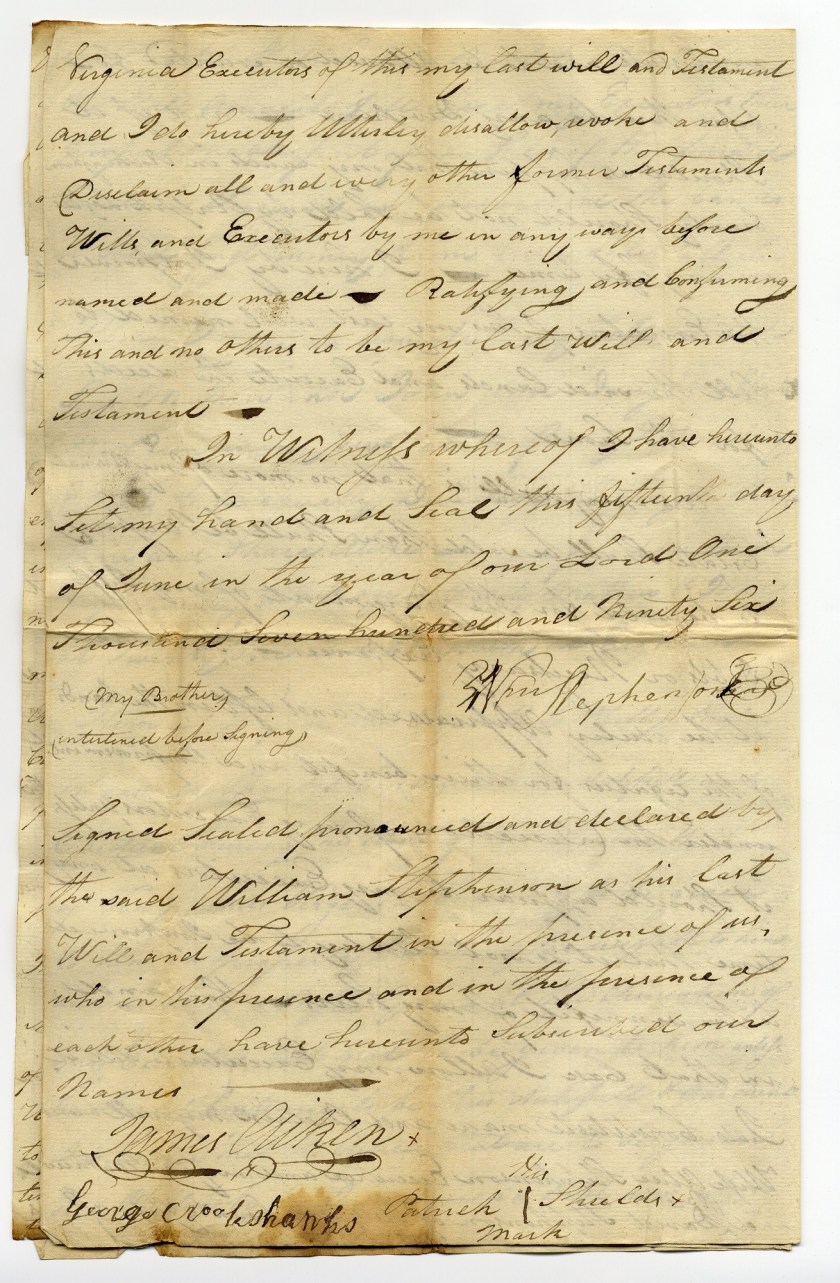 Virginia Executors of this my last will and Testament
and I do hereby Utterly disallow, revoke and
Disclaim all and every other former Testaments
Wills, and Executors by me in any ways before
named and made — Ratifying and Confirming
this and no others to be my last Will and
Testament —
In Witness whereof I have hereunto
Set my hand and Seal this fifteenth day
of June in the year of our Lord One
Thousand Seven hundred and Ninety Six
Wm Stephenson
(My Brother)
(interlined before Signing)
Signed Sealed pronounced and declared by
the said William Stephenson as his last
Will and Testament in the presence of us,
who in his presence and in the presence of
each other have hereunto Subscribed our
Names —
James Aiken x
His
George Crookshanks Patrick | Shields x
Mark